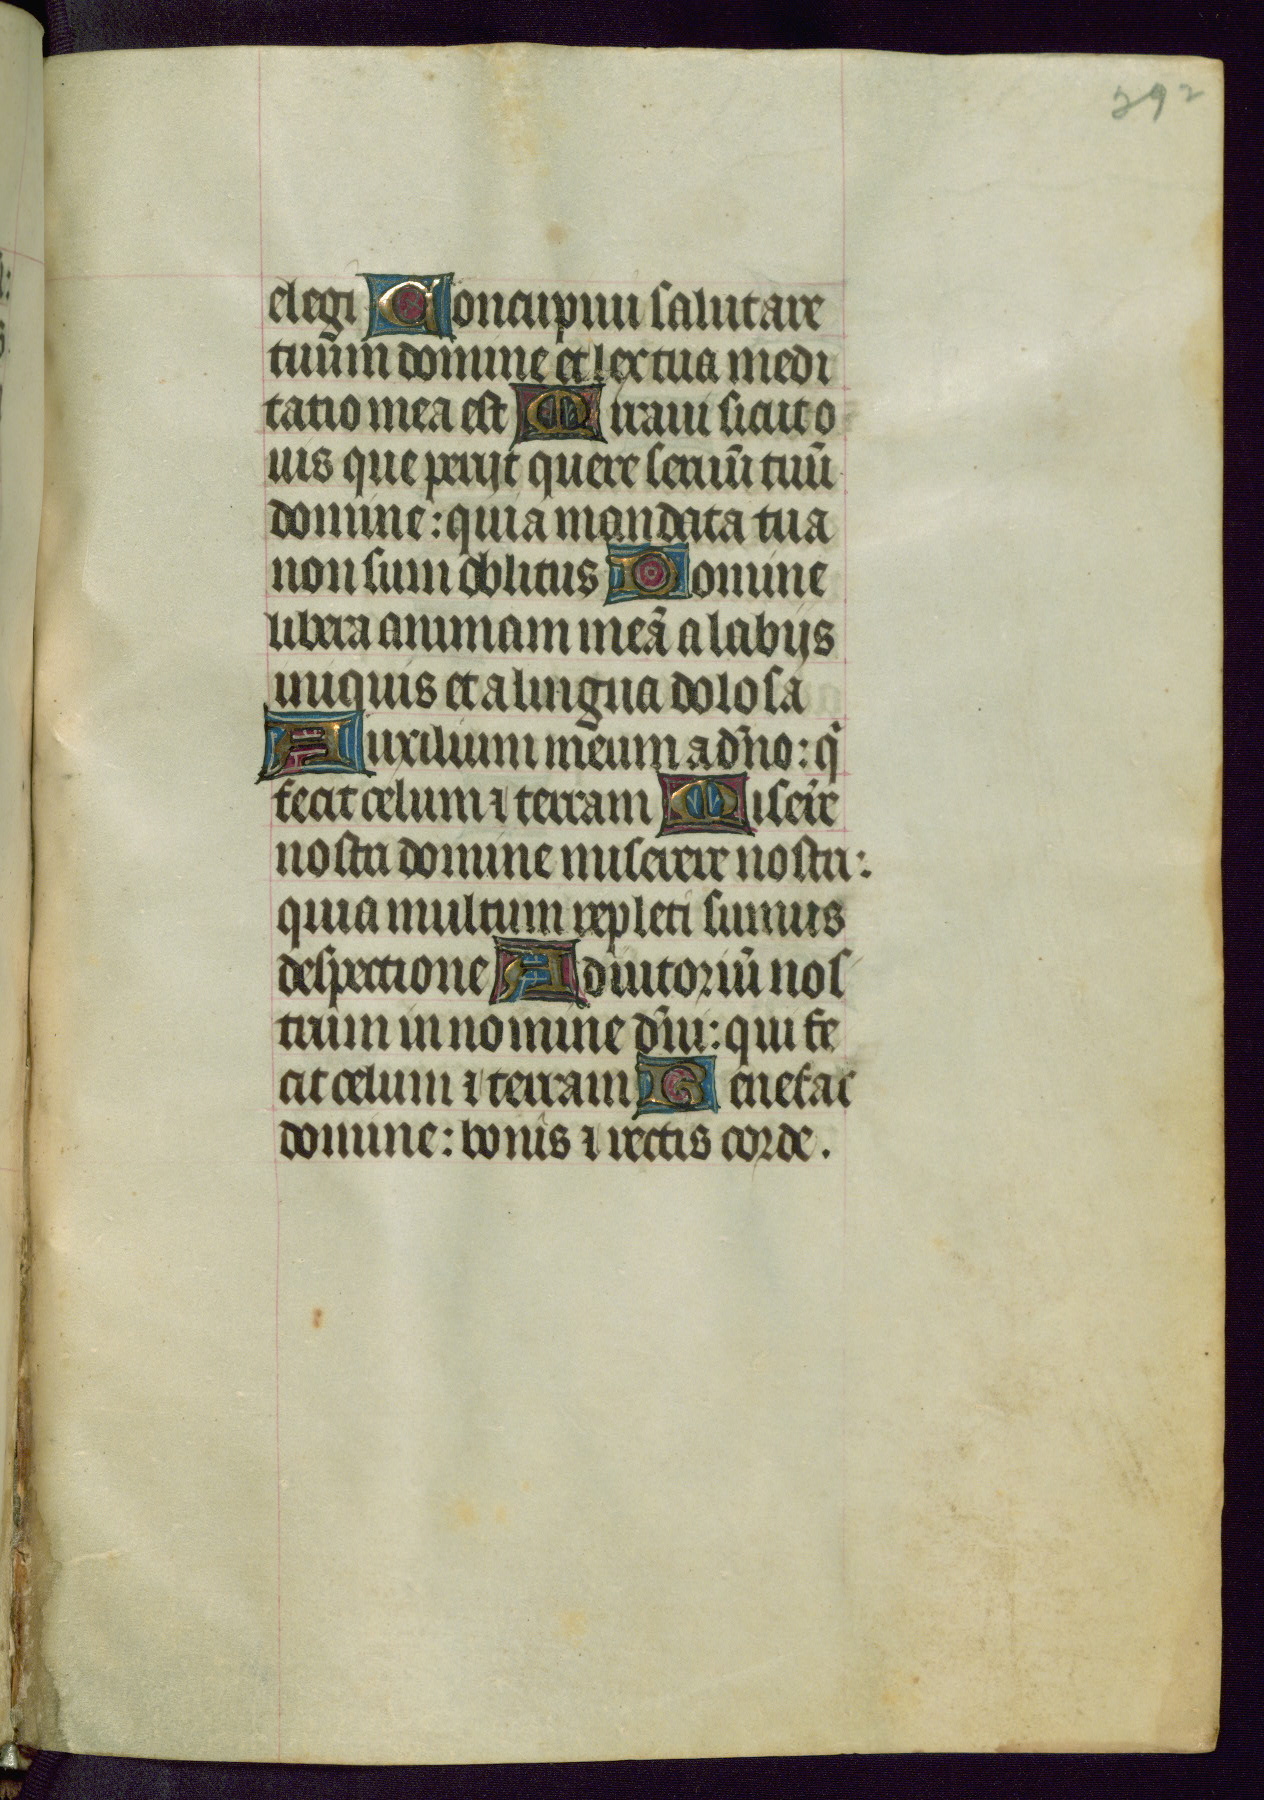 292
elegi Concupiui salutare
tuum domine et lex tua medi
tatio mea est Erraui sicut o
uis que perijt quere seruū tuū
domine : quia mandata tua
non sum oblitus Domine
libera animam meā a labijs
iniquis et a lingua dolosa
Auxilium meum a dn̄o : qi
fecit celum ⁊ terram Misere
nostri domine miserere nostri :
quia multum repleti sumus
despectione Adiutoriū nos
trum in nomine dn̄i : qui fe
cit celum ⁊ terram Benefac
domine : bonis ⁊ rectis corde .